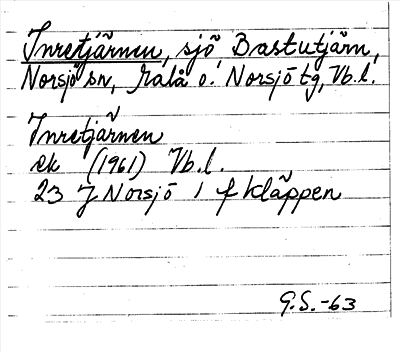 Inretjärnen, sjö, Bastutjärn,
Norsjö sn, Malå o. Norsjö tg, Vb.l.
Inretjärnen
ek (1961) Vb.l.
23 J Norsjö 1 f Kläppen
G.S.-63